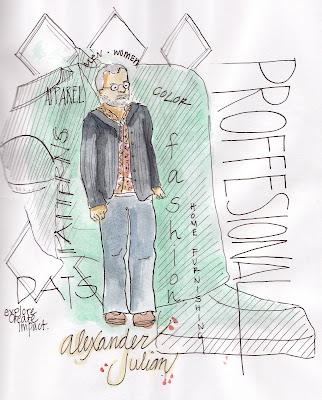 MEN • WOMEN
APPAREL
COLOR
fashion
HOME FURNISHING
PROFFESIONAL
DATS
explore
create
impact.
alexander
julian